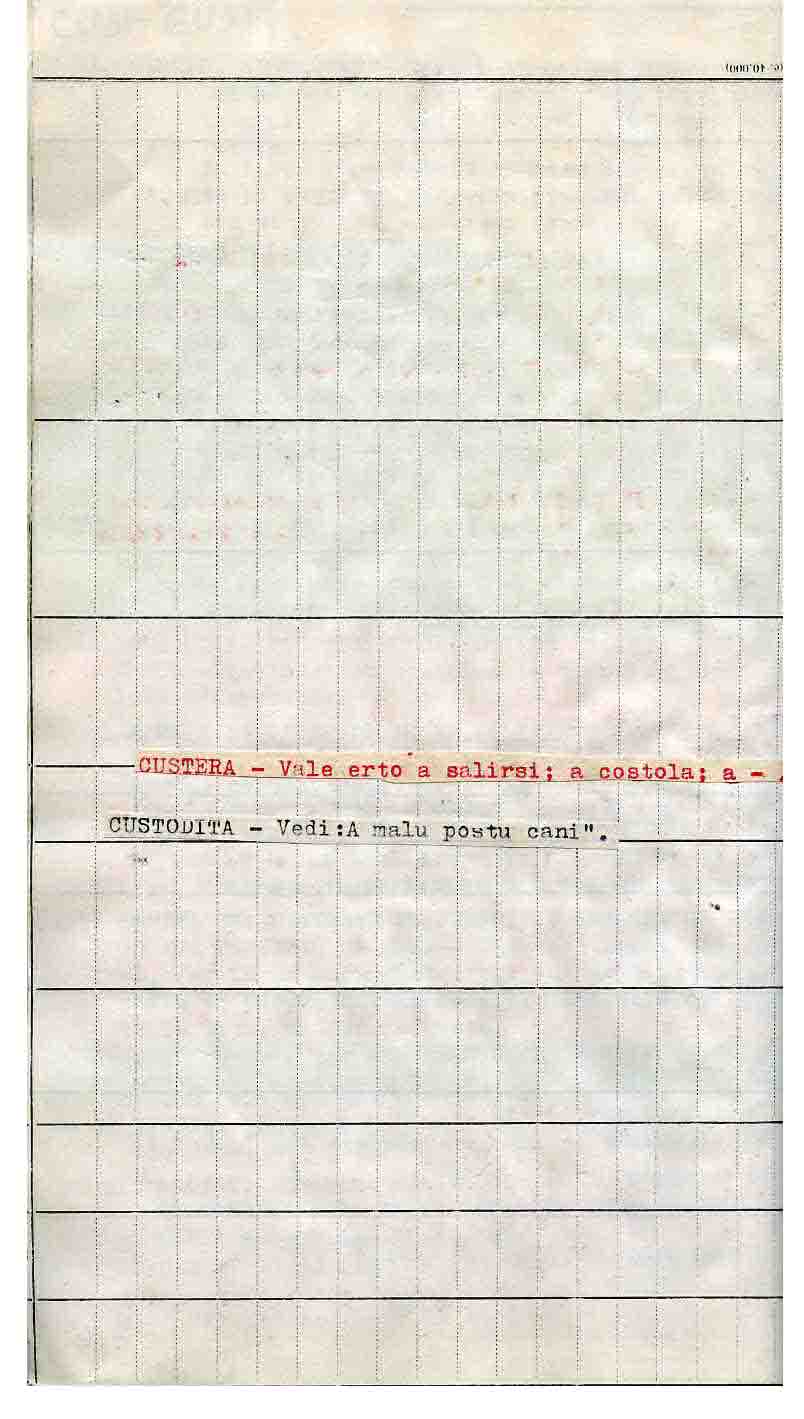 CUSTERA - Vale erto a salirsi; a costola; a -
CUSTODITA - Vedi:A malu postu cani".